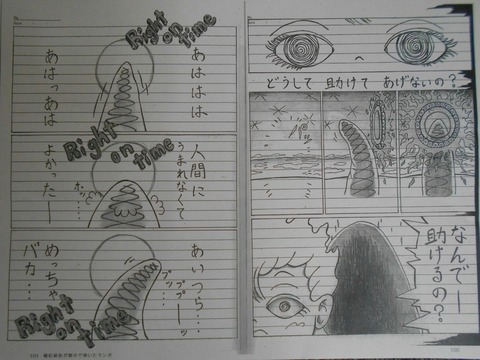 どうして 助けて あげないの？
なんでー
助けるの？
100
Right on time
あははは
あはっあは
Right on time
人間に
うまれなくて
ホッ……
よかったー
あいつら…
めっちゃ
バカ…
Right on time